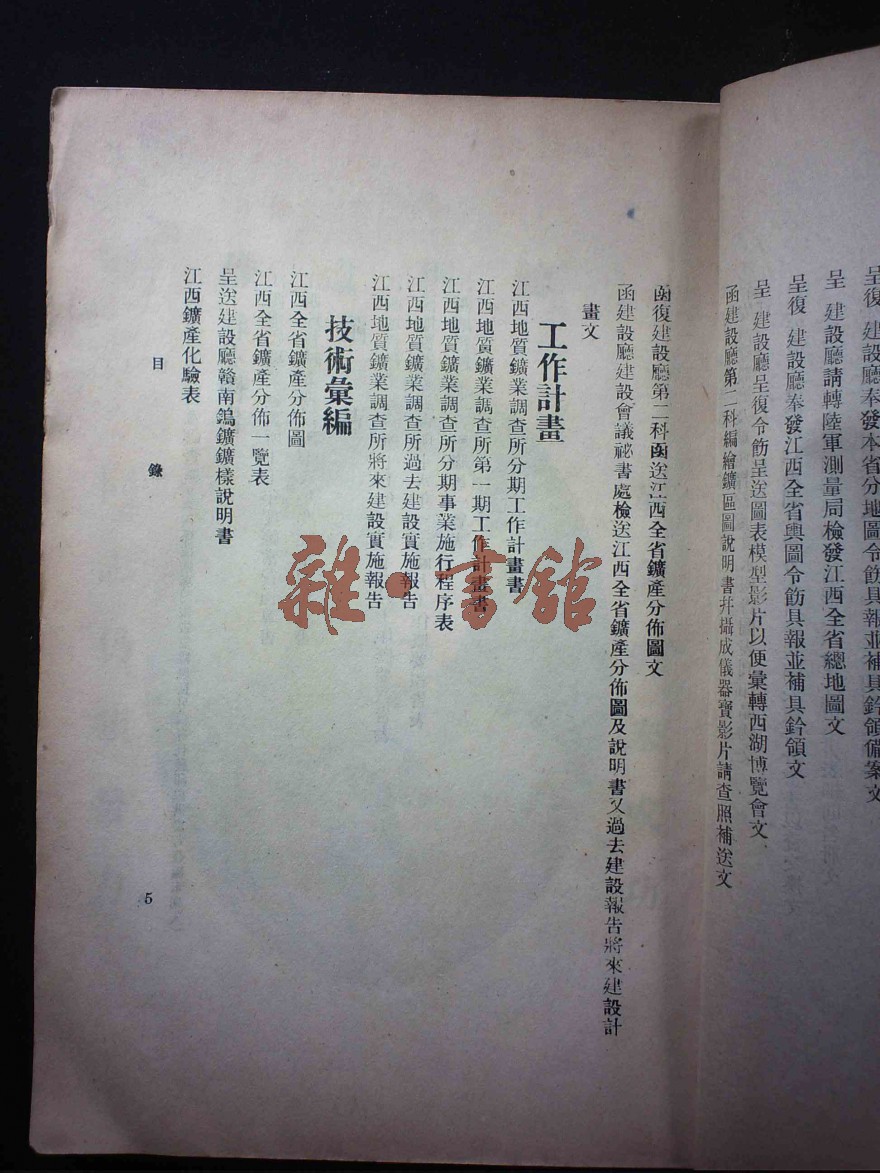 呈復 建設廳奉發本省分地圖令飭具報並補具鈐領備案文
呈 建設廳請轉陸軍測量局檢發江西全省總地圖文
呈復 建設廳奉發江西全省輿圖令飭具報並補具鈐領文
呈 建設廳呈復令飭呈送圖表模型影片以便彙轉西湖博覽會文
函建設廳第二科編繪鑛區圖說明書幷攝成儀器寶影片請查照補送文
函復建設廳第二科函送江西全省鑛產分佈圖文
函建設廳建設會議祕書處檢送江西全省鑛產分佈圖及說明書又過去建設報告將來建設計
畫文
工作計畫
江西地質鑛業調查所分期工作計畫書
江西地質鑛業調查所第一期工作計畫書
江西地質鑛業調查所分期事業施行程序表
江西地質鑛業調查所過去建設實施報告
江西地質鑛業調查所將來建設實施報告
技術彙編
江西全省鑛產分佈圖
江西全省鑛產分佈一覽表
呈送建設廳贛南鎢鑛鑛樣說明書
江西鑛產化驗表
目 錄
5
雜·書館